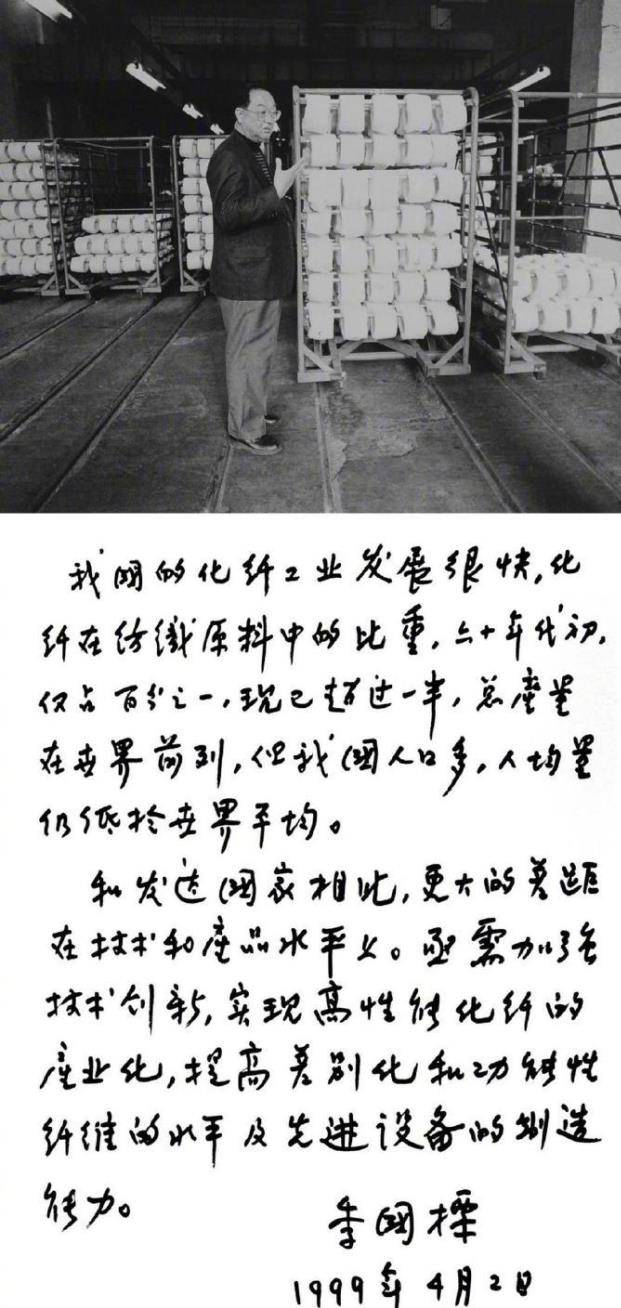 我國的化纤工业发展很快，化
纤在纺織原料中的比重，六十年代初，
仅占百分之一，现已超过一半，总產量
在世界前列，但我國人口多，人均量
仍低於世界平均。
和发达國家相比，更大的差距
在技术和產品水平上。亟需加强
技术创新，实现高性能化纤的
產业化，提高差别化和功能性
纤维的水平及先进设备的制造
能力。
季國標
1999年4月2日